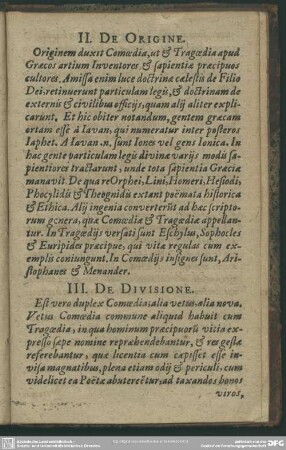 II. DE ORIGINE.
Originem duxit Comœdia, ut & Tragœdia apud
Græcos artium Inventores & sapientiæ præcipuos
cultores. Amissa enim luce doctrinæ cælestis de Filio
Dei, retinuerunt particulam legis, & doctrinam de
externis & civilibus officijs, quam alij aliter expli-
carunt, Et hic obiter notandum, gentem græcam
ortam esse à Iavan, qui numeratur inter posteros
Iaphet. A Iavan .n. sunt Iones vel gens Ionica. In
hac gente particulam legis divinæ varijs modis sa-
pientiores tractarunt, unde tota sapientia Græciæ
manavit. De qua re Orphei, Lini, Homeri, Hesiodi,
Phocylidis & Theognidis extant poëmata historica
& Ethica. Alij ingenia converterũt ad hæc scripto-
rum genera, quæ Comœdiæ & Tragœdiæ appellan-
tur. In Tragœdijs versati sunt Eschylus, Sophocles
& Euripides præcipue, qui vitæ regulas cum exem-
plis coniungunt. In Comœdijs insignes sunt, Ari-
stophanes & Menander.
III. DE DIVISIONE.
Est vero duplex Comœdia: alia vetus, alia nova.
Vetus Comœdia commune aliquid habuit cum
Tragœdia, in qua hominum præcipuorũ vitia ex-
presso sæpe nomine repræhendebantur, & res gestæ
referebantur, quæ licentia cum cæpisset esse in-
visa magnatibus, plena etiam odij & periculi, cum
videlicet ea Poëtæ abuterẽtur, ad taxandos bonos
viros,